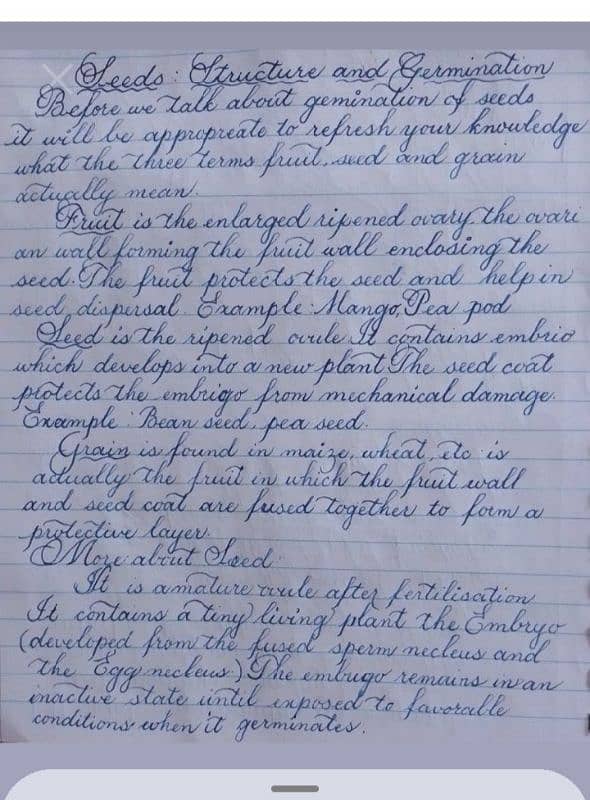 Seeds: Structure and Germination
Before we talk about gemination of seeds
it will be appropreate to refresh your knowledge
what the three terms fruit, seed and grain
actually mean.
Fruit is the enlarged ripened ovary the ovari
an wall forming the fruit wall enclosing the
seed. The fruit protects the seed and help in
seed dispersal. Example: Mango, Pea pod
Seed is the ripened ovule It contains embrio
which develops into a new plant The seed coat
protects the embrigo from mechanical damage.
Example: Bean seed, pea seed.
Grain is found in maize, wheat, etc is
actually the fruit in which the fruit wall
and seed coat are fused together to form a
protective layer.
More about Seed:
It is a mature ovule after fertilisation
It contains a tiny living plant the Embryo
(developed from the fused sperm necleus and
the Egg necleus) The embugo remains in an
inactive state until exposed to favorable
conditions when it germinates.